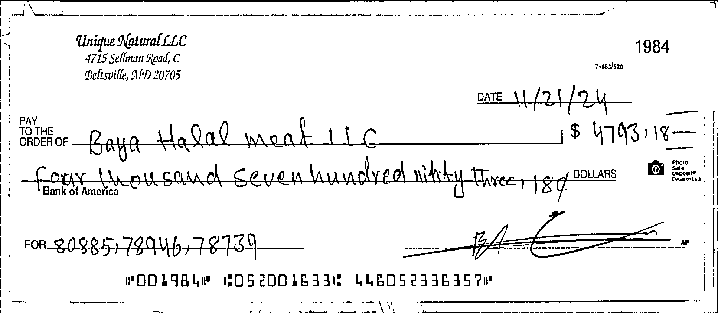 Unique Natural LLC
4715 Sellman Road, C
Beltsville, MD 20705
1984
DATE 11/21/24
PAY
TO THE
ORDER OF Baya Halal meat LLC $ 4793.18
four thousand seven hundred ninty three, 18¢ DOLLARS
Photo
Safe
Deposit®
Bank of America
FOR 80885,78946,78739
⑈001984⑈ ⑆052001633⑆ 446052336357⑈